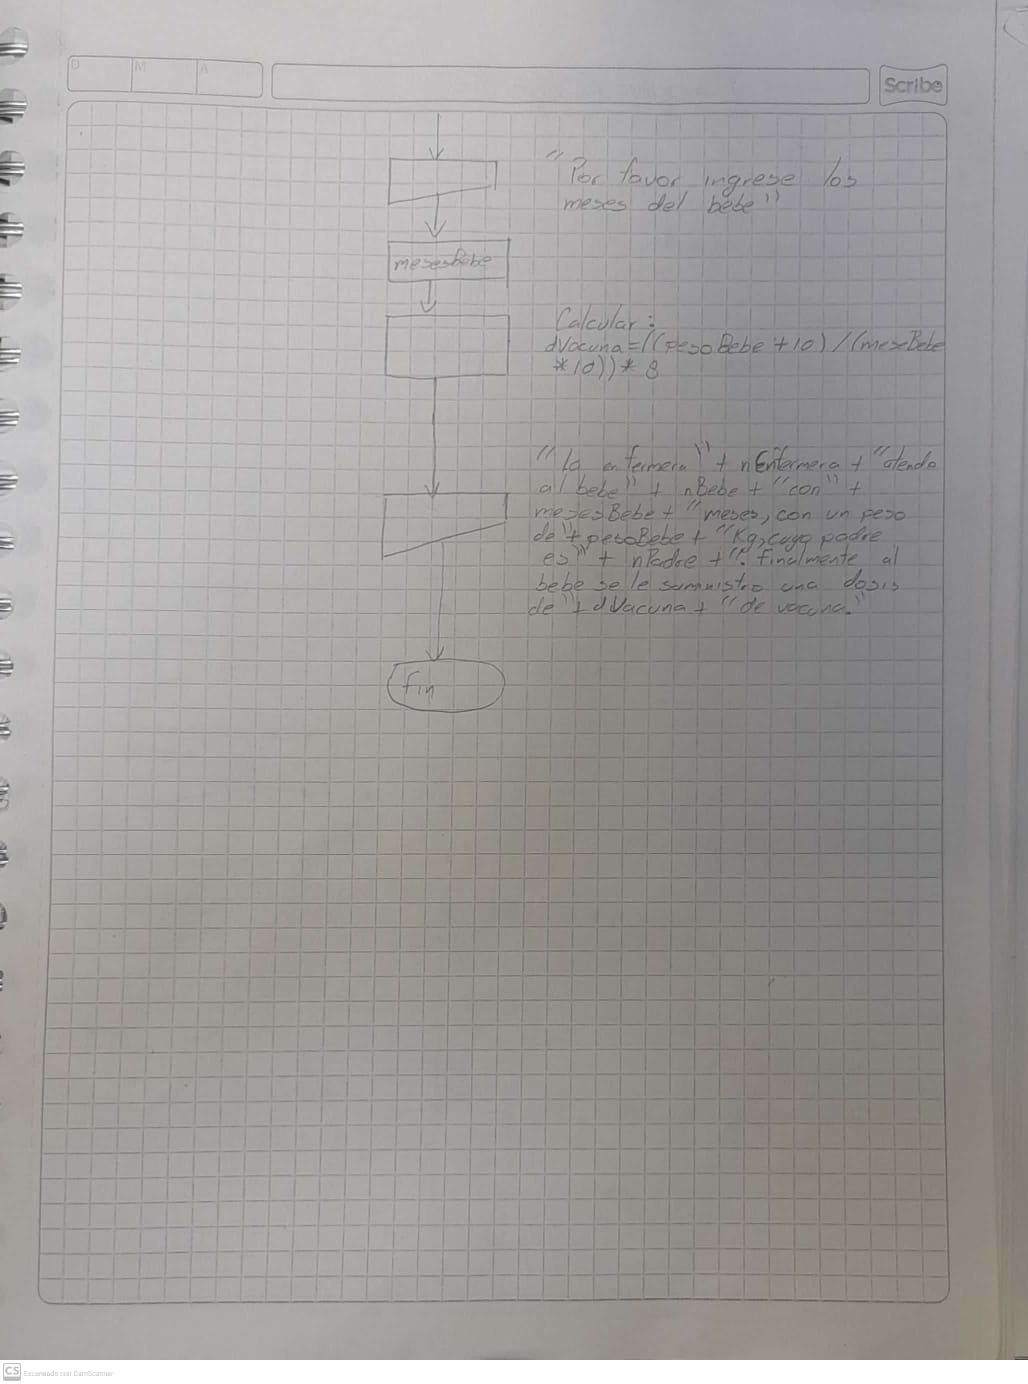 D M A
Scribe
"Por favor ingrese los
meses del bebe"
mesesBebe
Calcular:
dVacuna=((pesoBebe+10)/(meseBebe
*10))*8
"La enfermera"+ nEnfermera + "atendo
al bebe" + nBebe + "con" +
mesesBebe + "meses, con un peso
de"+ pesoBebe + "Kg, cuyo padre
es" + nPadre + ". finalmente al
bebe se le suministro una dosis
de"+ dVacuna + "de vacuna."
fin
CS Escaneado con CamScanner